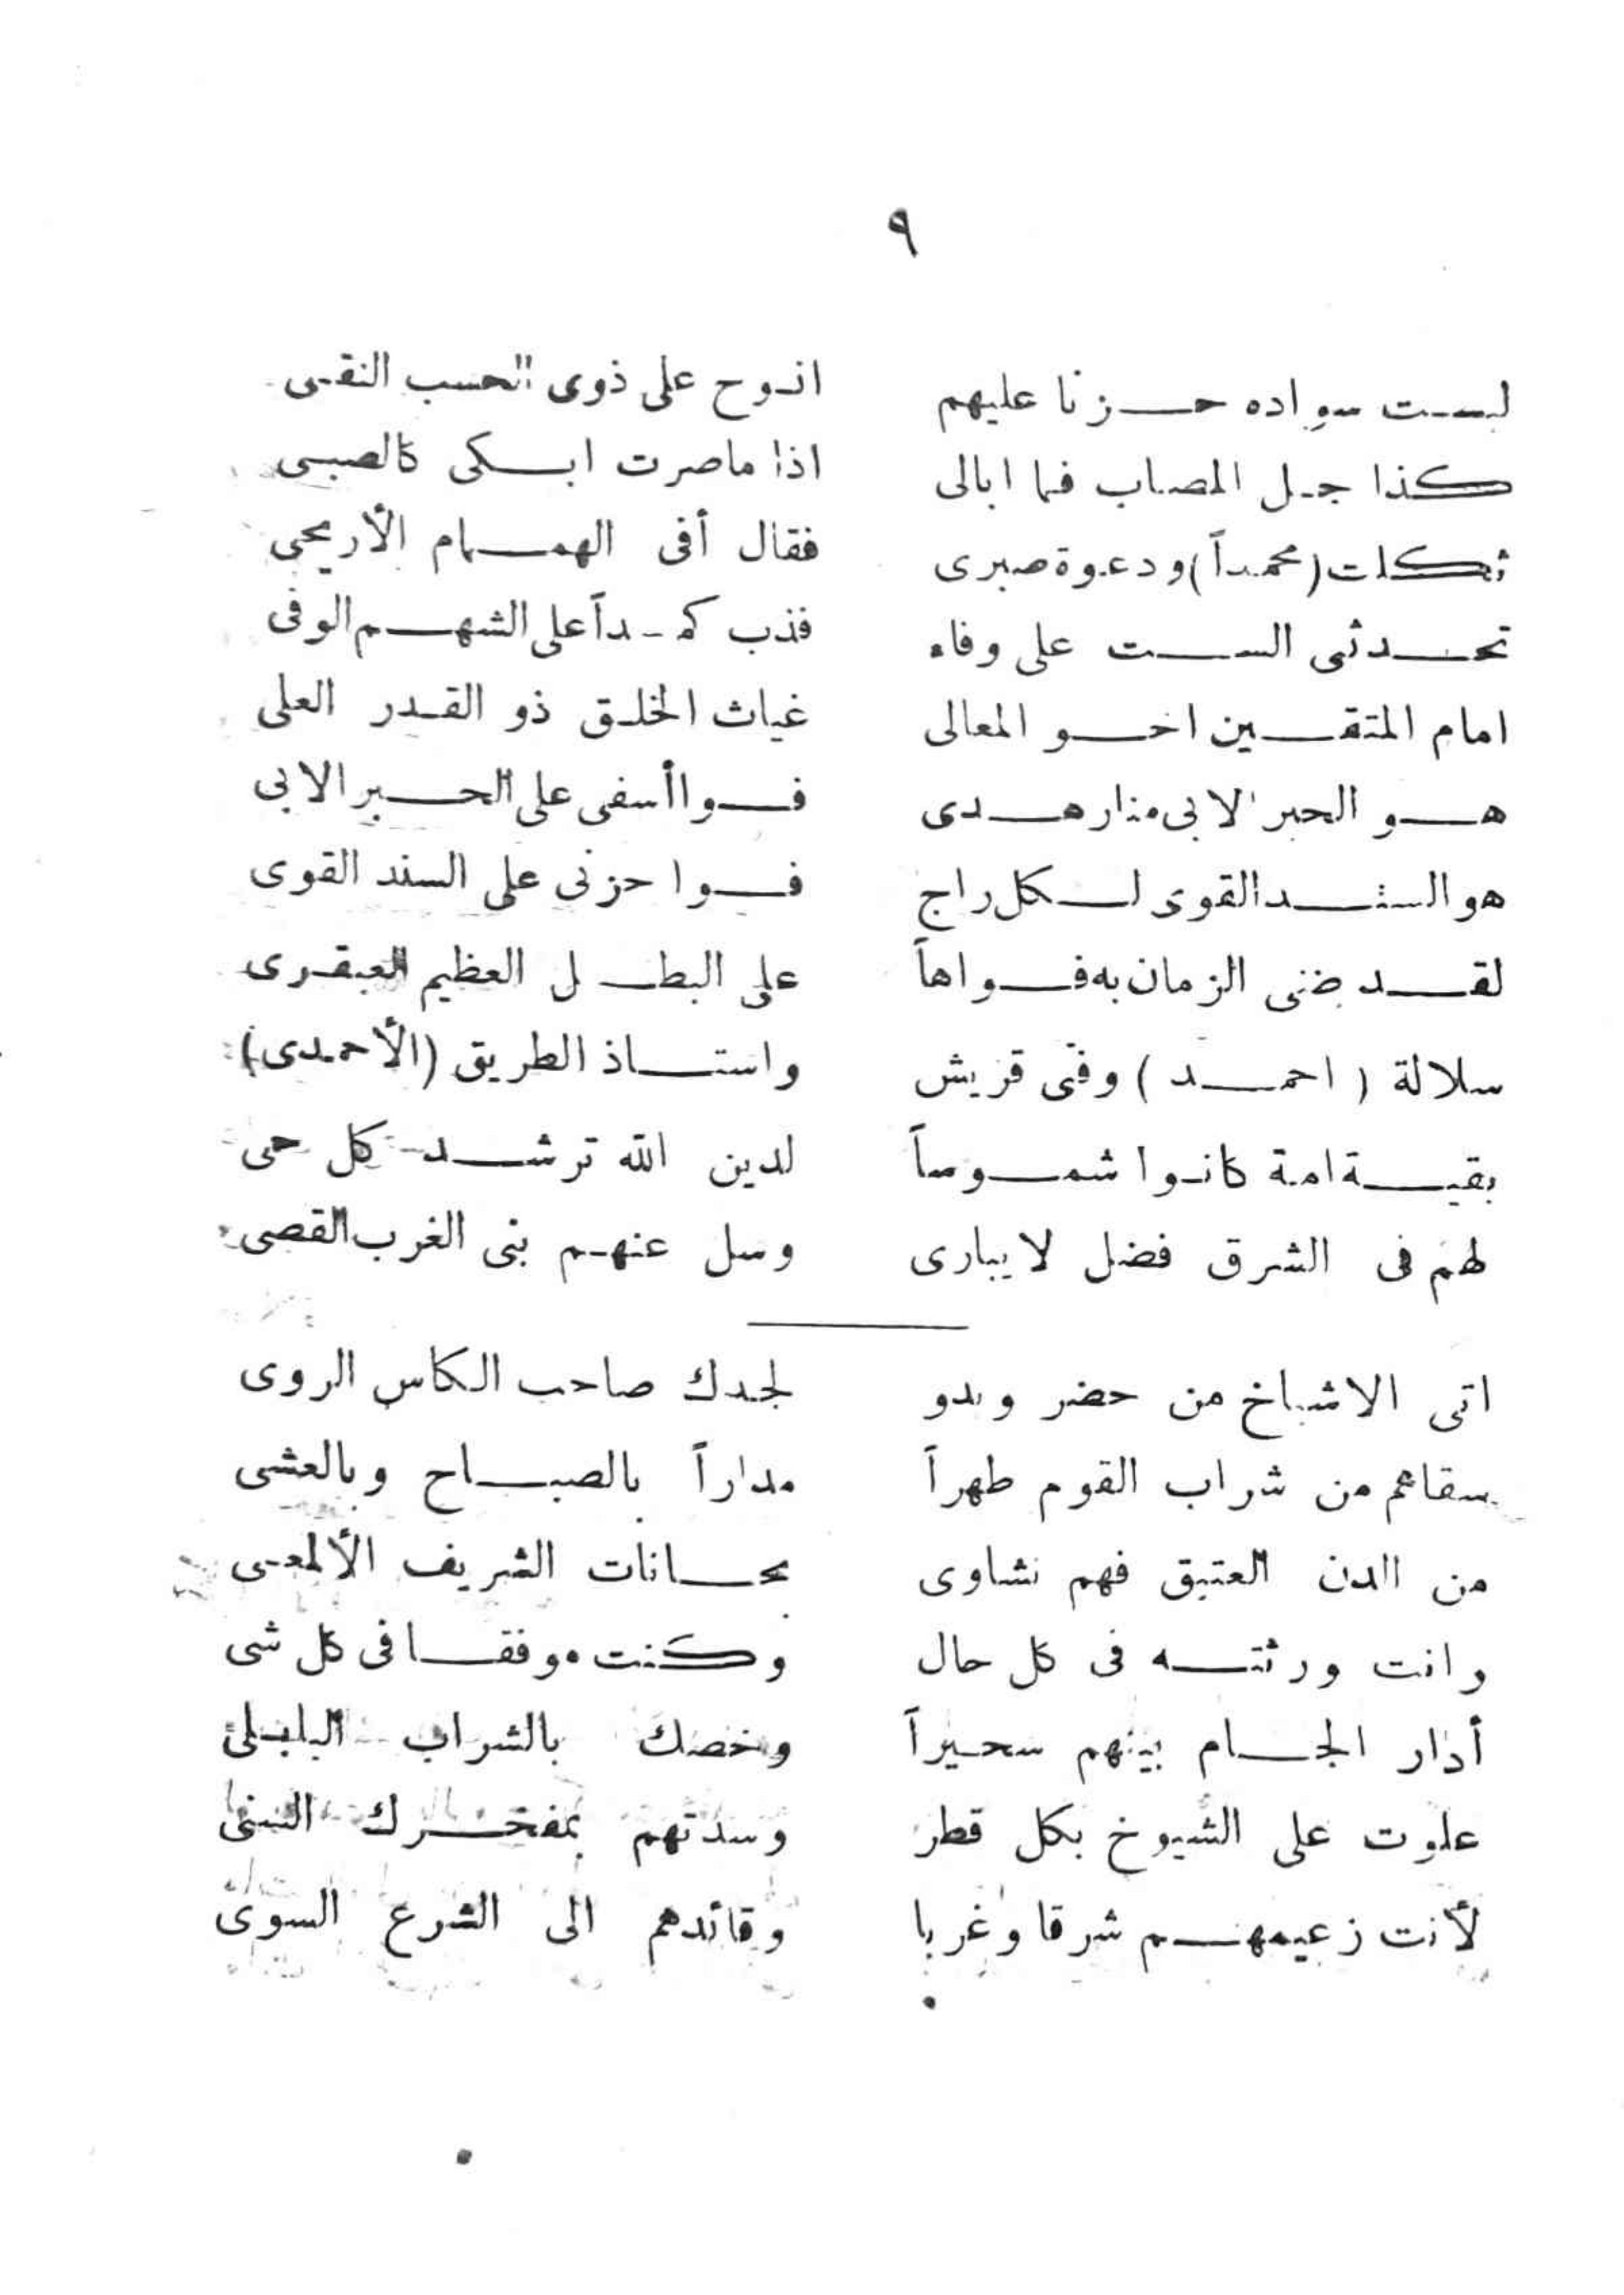 ٩
لبست سواده حزنا عليهم انوح على ذوى الحسب النقى
كذا جل المصاب فما ابالى اذا ماصرت ابكى كالصبى
ثكلت (محمداً) ودعوة صبرى فقال أفى الهمام الأريحى
تحدثى الست على وفاء فذب كمداً على الشهم الوفى
امام المتقين اخو المعالى غياث الخلق ذو القدر العلى
هو الحبر الابى منار هدى فوا أسفى على الحبر الابى
هو السند القوى لكل راج فوا حزنى على السند القوى
لقد ضنى الزمان به فواهاً على البطل العظيم العبقرى
سلالة (احمد) وفتى قريش واستاذ الطريق (الأحمدى)
بقية امة كانوا شموساً لدين الله ترشد كل حى
لهم فى الشرق فضل لا يبارى وسل عنهم بنى الغرب القصى
اتى الاشياخ من حضر وبدو لجدك صاحب الكاس الروى
سقاهم من شراب القوم طهراً مداراً بالصباح وبالعشى
من الدن العتيق فهم نشاوى بحانات الشريف الألمعى
وانت ورثته فى كل حال وكنت موفقا فى كل شى
أدار الجام بينهم سحيراً وخصك بالشراب البابلى
علوت على الشيوخ بكل قطر وسدتهم بمفخرك السنى
لأنت زعيمهم شرقا وغربا وقائدهم الى الشرع السوى